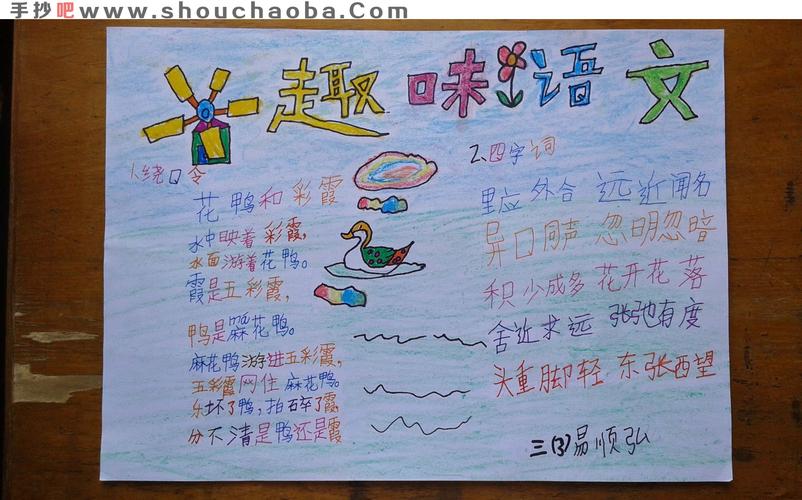 手抄吧 www.shouchaoba.com
趣味语文
1、绕口令
花鸭和彩霞
水中映着彩霞，
水面游着花鸭。
霞是五彩霞，
鸭是麻花鸭。
麻花鸭游进五彩霞，
五彩霞网住麻花鸭。
乐坏了鸭，拍碎了霞，
分不清是鸭还是霞
2、四字词
里应外合 远近闻名
异口同声 忽明忽暗
积少成多 花开花落
舍近求远 张弛有度
头重脚轻 东张西望
三(3)易顺弘